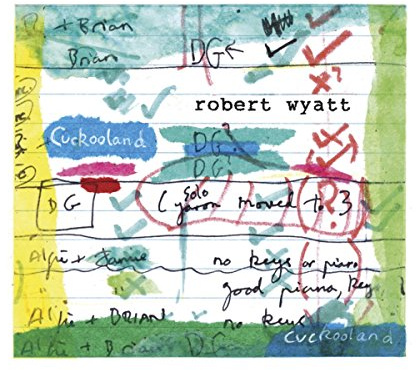 + Brian
Brian DG←
robert wyatt
Cuckooland DG?
DG
DG (yaron solo moved to ? 3)
Alfie + Jamie no keys or piano
good piano, key
Alfie + BRIAN no keys
cuckooland
Alfie + Brian DG